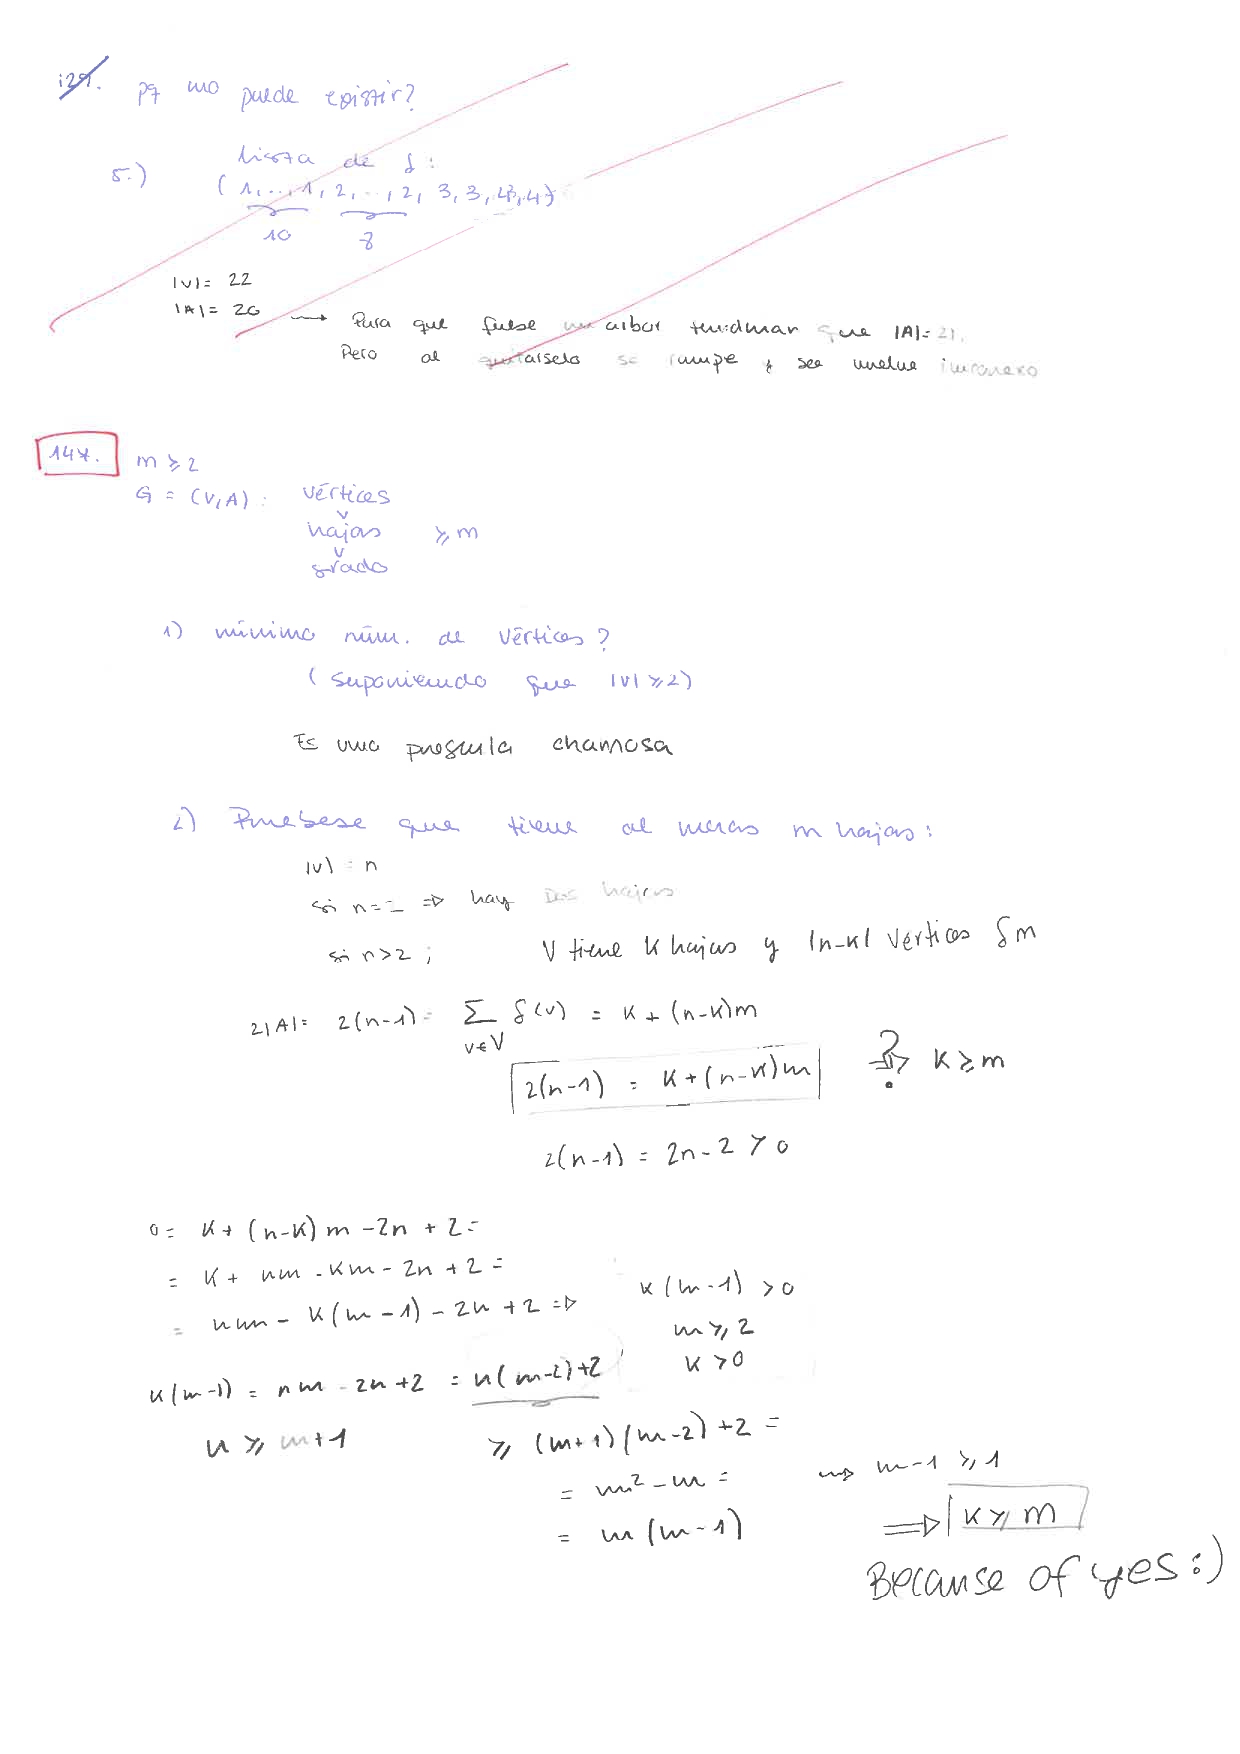 129. pq no puede existir?
5.) lista de δ:
(1,..,1, 2,..,2, 3, 3, 4, 4)
10 8
|V|= 22
|A|= 26 → Para que fuese un arbol que |A|=21.
Pero al se rumpe y see vuelve inconexo
147. m ≥ 2
G = (V,A): vértices
hojas ≥ m
grado
1) mínimo núm. de vértices?
(suponiendo que |V| ≥ 2)
Es una pregunta chamosa
2) Pruebese que tiene al menos m hojas:
|V| = n
si n=2 ⇒ hay Dos hojas
si n>2 ; V tiene K hojas y |n-K| vértices δ m
2|A|= 2(n-1)= Σ δ(v) = K + (n-K)m
v∈V
2(n-1) = K+(n-K)m ? ⇒ K ≥ m
2(n-1) = 2n-2 > 0
0= K+ (n-K) m -2n + 2=
= K+ nm -Km - 2n +2 =
= nm - K(m-1) - 2n +2 ⇒ K(m-1) >0
m ≥ 2
K >0
K(m-1) = nm -2n+2 = n(m-2)+2
n ≥ m+1 ≥ (m+1)(m-2)+2 =
= m² - m = ⇒ m-1 ≥ 1
= m(m-1) ⇒ K ≥ m
Because of yes:)